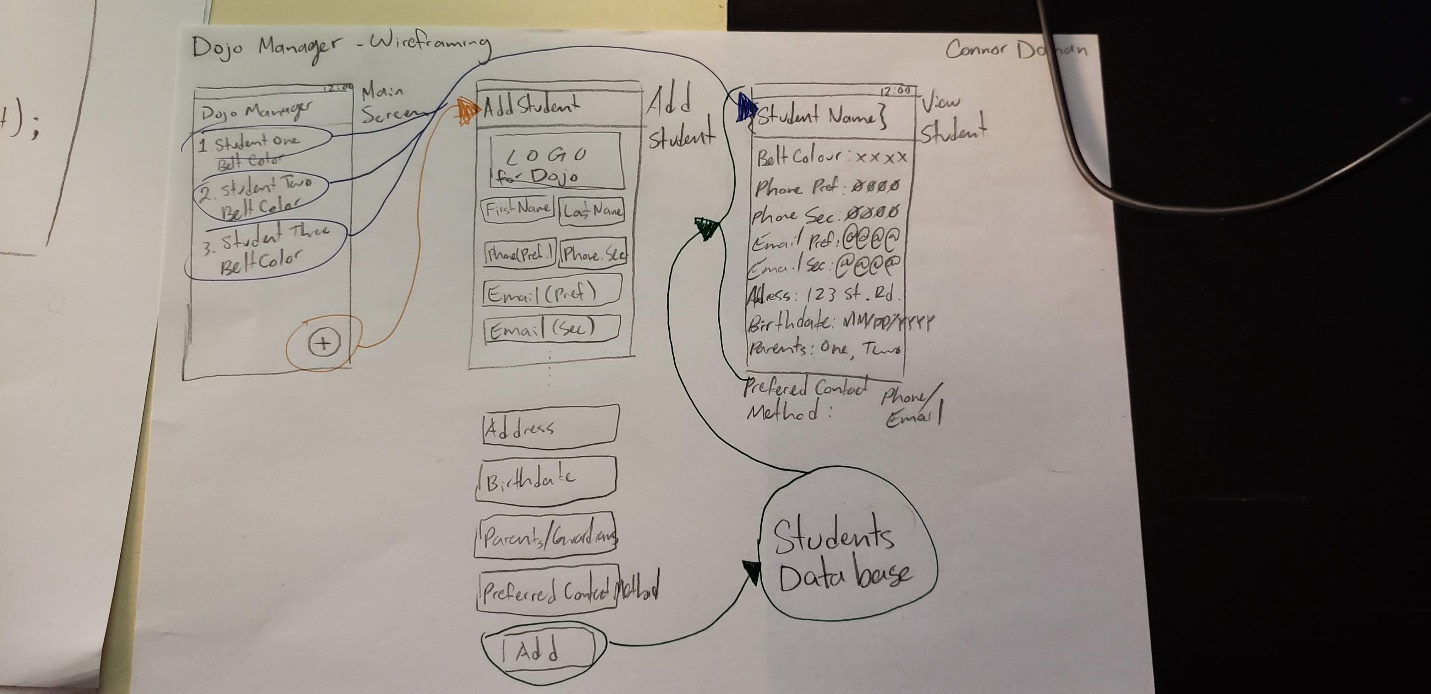 Dojo Manager - Wireframing
Connor Doman
12:00
Dojo Manager
Main
Screen
1. Student One
Belt Color
2. Student Two
Belt Color
3. Student Three
Belt Color
+
Add Student
Add
Student
LOGO
for Dojo
First Name
Last Name
Phone (Pref.)
Phone. Sec
Email (Pref)
Email (Sec)
Address
Birthdate
Parents/Guardians
Preferred Contact Method
Add
12:00
{Student Name}
View
Student
Belt Colour: xxxx
Phone Pref: 0000
Phone Sec: 0000
Email Pref: @@@@
Email Sec: @@@@
Adress: 123 St. Rd.
Birthdate: MM/DD/YYYY
Parents: One, Two
Prefered Contact
Method:
Phone/
Email
Students
Database
);